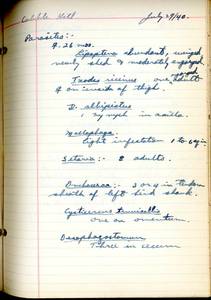 July 29/40.
Parasites:-
♀. 26 mos.
Lipeptena abundant, winged
newly shed & moderately engorged
Ixodes ricinus one adult
♀ on inside of thigh.
D. albipictus
1 ny nymph in axilla.
Mallophaga.
Light infestation 1 to 6 in.
Setaria:- 2 adults.
Onchocerca:- 3 or 4 in tendon
sheath of left hind shank.
Cysticercus tenuicollis
one on omentum.
Oesophagostomum
Three in cecum